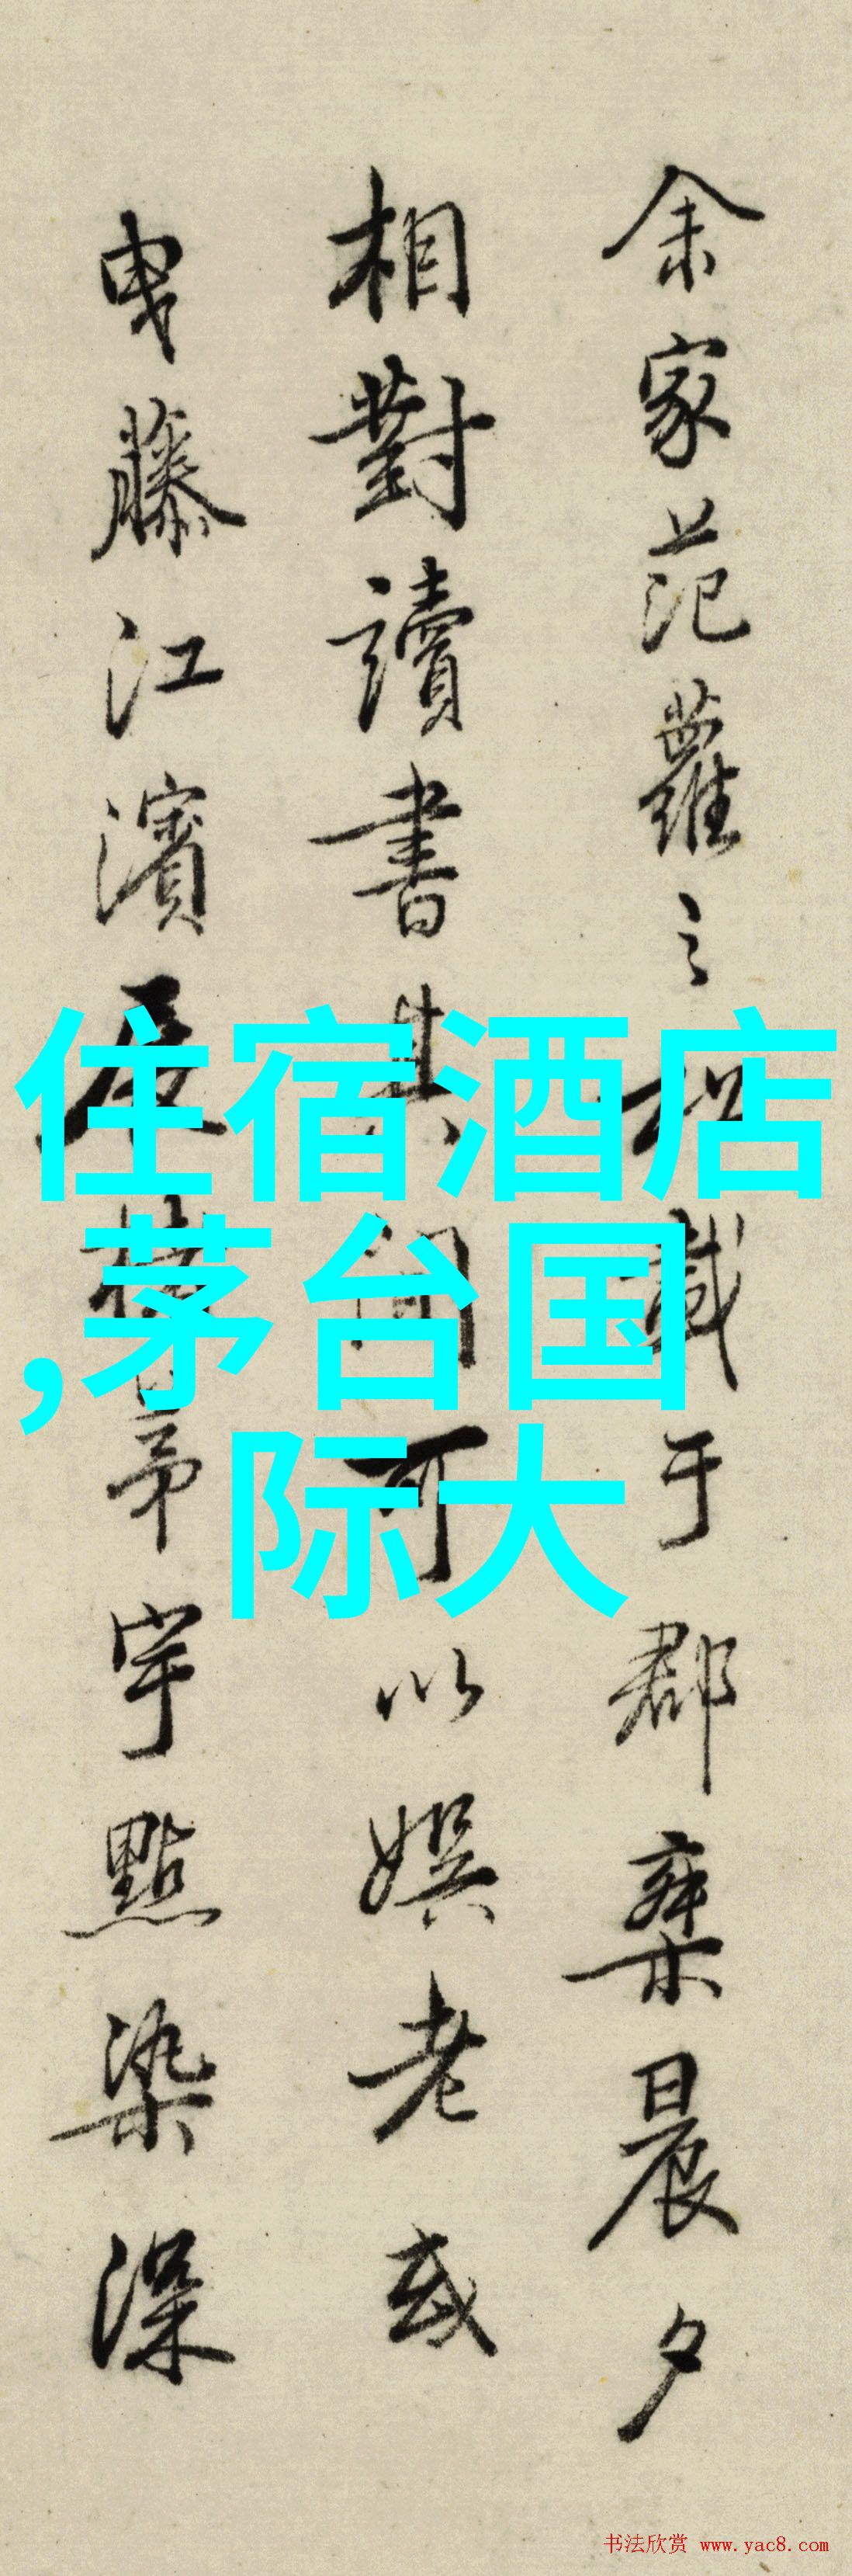 余家范蘿之
截于郡寨晨夕
相對讀書其間可以娛老或
曳藤江濱
帋宇點染深
住宿酒店
,茅台国
际大
书法欣赏 www.yac8.com